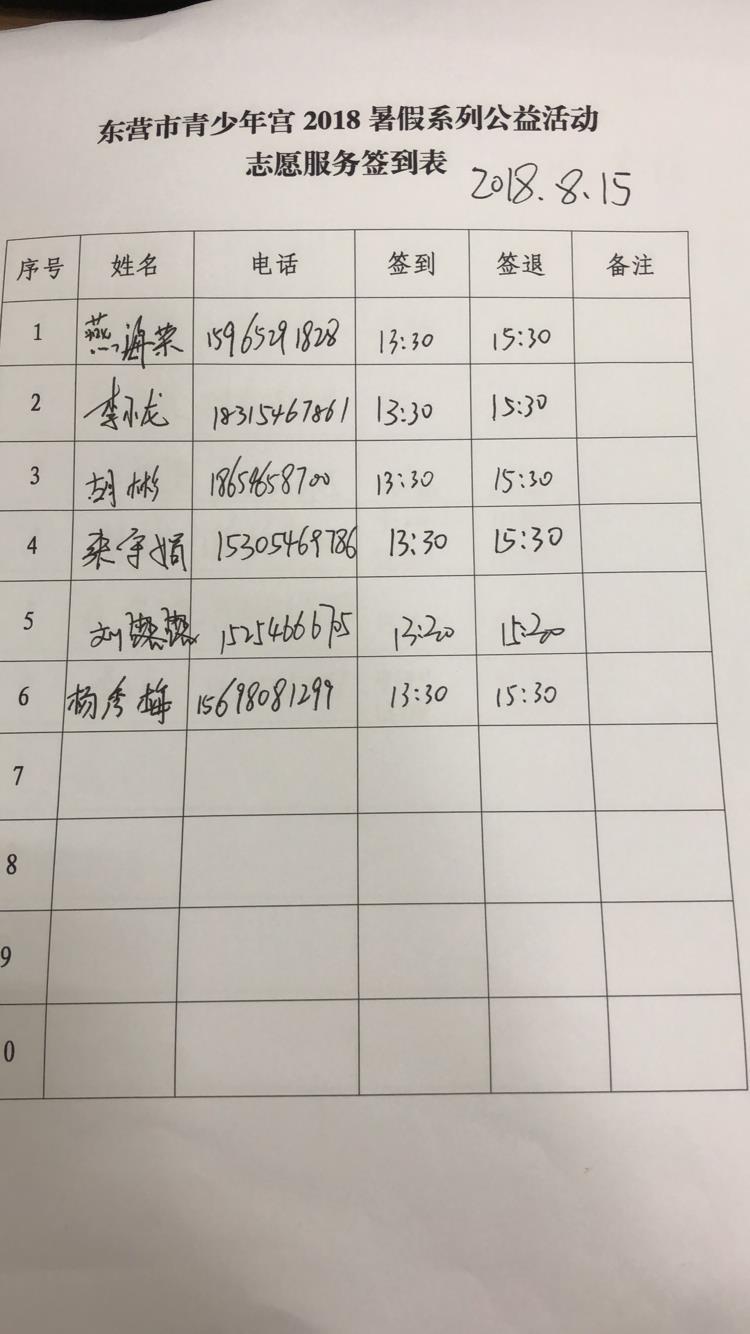 东营市青少年宫 2018 暑假系列公益活动
志愿服务签到表
2018.8.15
序号 姓名 电话 签到 签退 备注
1 燕海荣 15965291828 13:30 15:30
2 李小龙 18315467861 13:30 15:30
3 胡彬 18654658700 13:30 15:30
4 宇娟 15305469786 13:30 15:30
5 刘 13:20 15:20
6 杨秀梅 15698081299 13:30 15:30
7
8
9
0